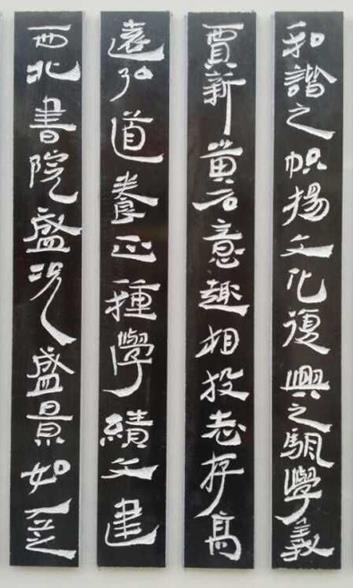 和諧之帜揚文化復興之颿學義
賈新黃石意趣相投志存高
遠弘道養正種學績文建
西北書院盛况盛景如